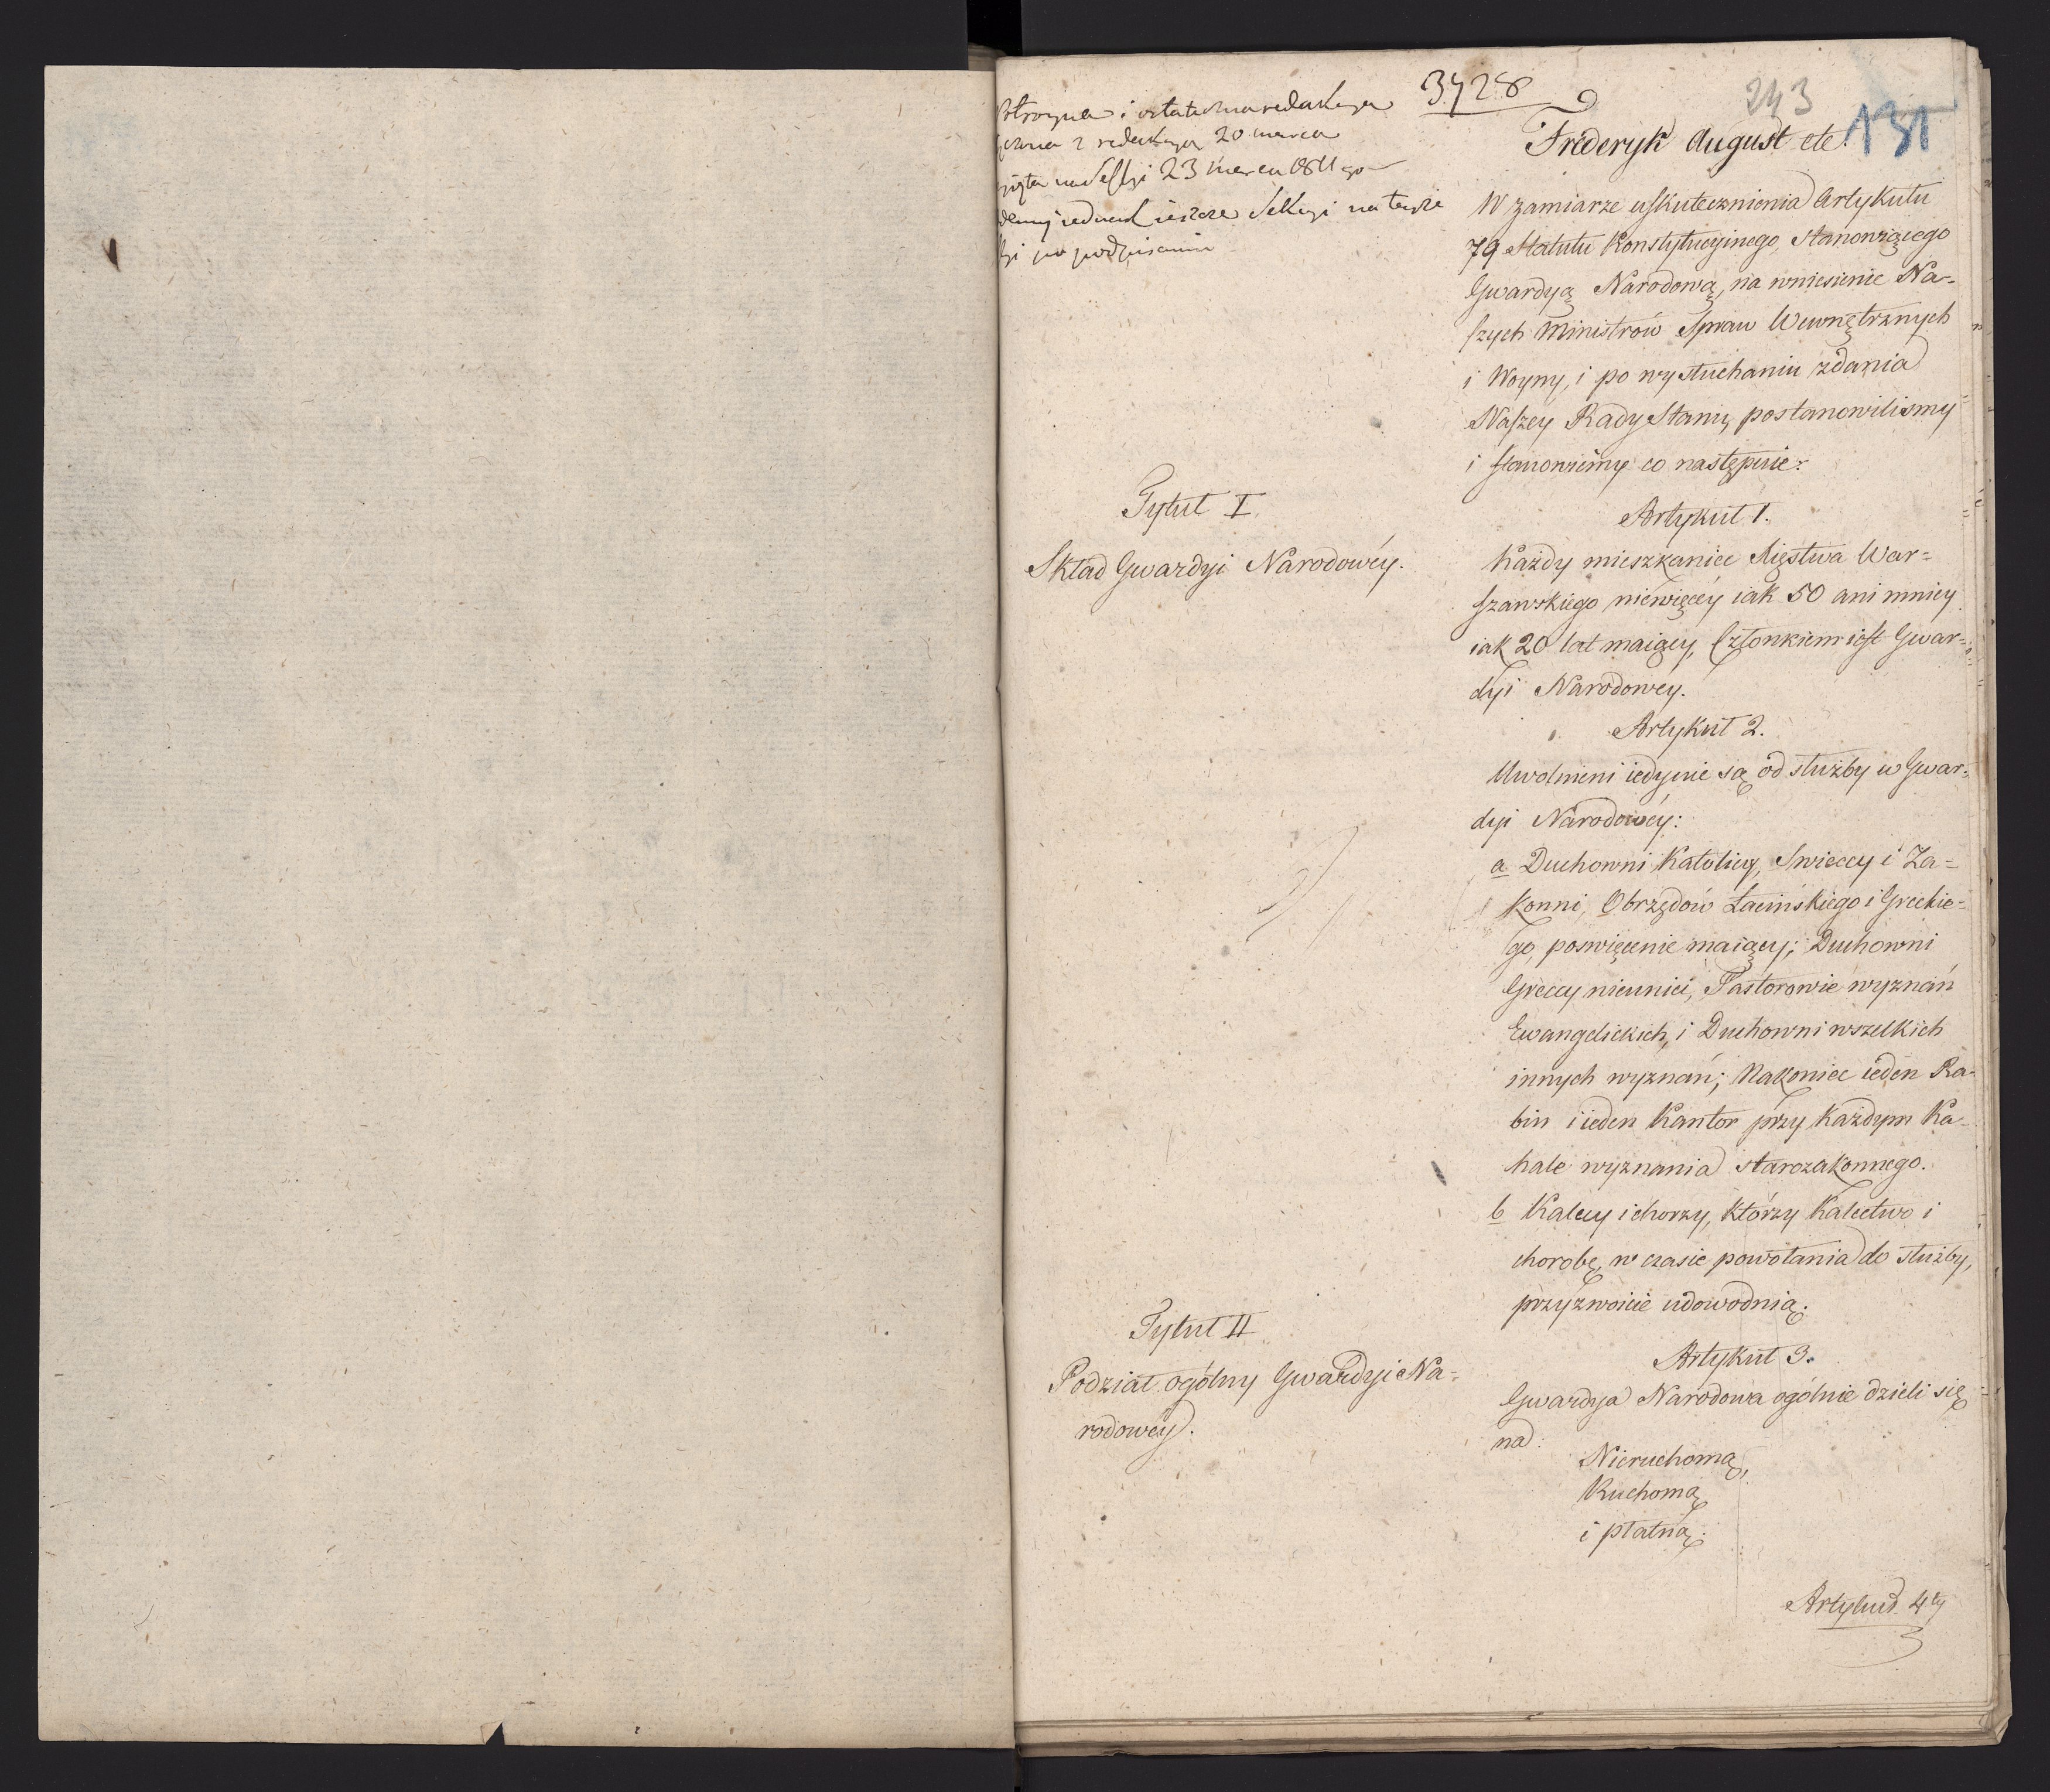 3728
243
131
i ostateczna redakcya
z redakcyą 20 marca
na Sessyi 23 marca 1811 go
iednak ieszcze Sekcyi na teyże
po podpisaniu
Frederyk August etc.
W zamiarze uskutecznienia Artykułu
79 Statutu Konstytucyinego, stanowiącego
Gwardyą Narodową, na wniesienie Na-
szych Ministrów Spraw Wewnętrznych
i Woyny, i po wysłuchaniu zdania
Naszey Rady Stanu, postanowilismy
i stanowiemy co następuie:
Tytuł I.
Skład Gwardyi Narodowéy.
Artykuł 1.
Każdy mieszkaniec Xięstwa War=
szawskiego niewięcéy iak 50 ani mniey
iak 20 lat maiący, Członkiem iest Gwar=
dyi Narodowey.
Artykuł 2.
Uwolnieni iedynie są od służby w Gwar=
dyi Narodowéy:
a Duchowni Katoliccy, Swieccy i Za=
konni, Obrzędów Łacińskiego i Greckie=
go, poswięcenie maiący; Duchowni
Greccy nieunici, Pastorowie wyznań
Ewangelickich, i Duchowni wszelkich
innych wyznań; Nakoniec ieden Ra-
bin i ieden Kantor przy każdym Ka-
hale wyznania starozakonnego.
b Kalecy i chorzy, którzy kalectwo i
chorobę, w czasie powołania do służby,
przyzwoicie udowodnią.
Tytuł II
Podział ogólny Gwardyi Na=
rodowéy.
Artykuł 3.
Gwardya Narodowa ogólnie dzieli się
na:
Nieruchomą,
Ruchomą
i płatną.
Artykuł 4ty